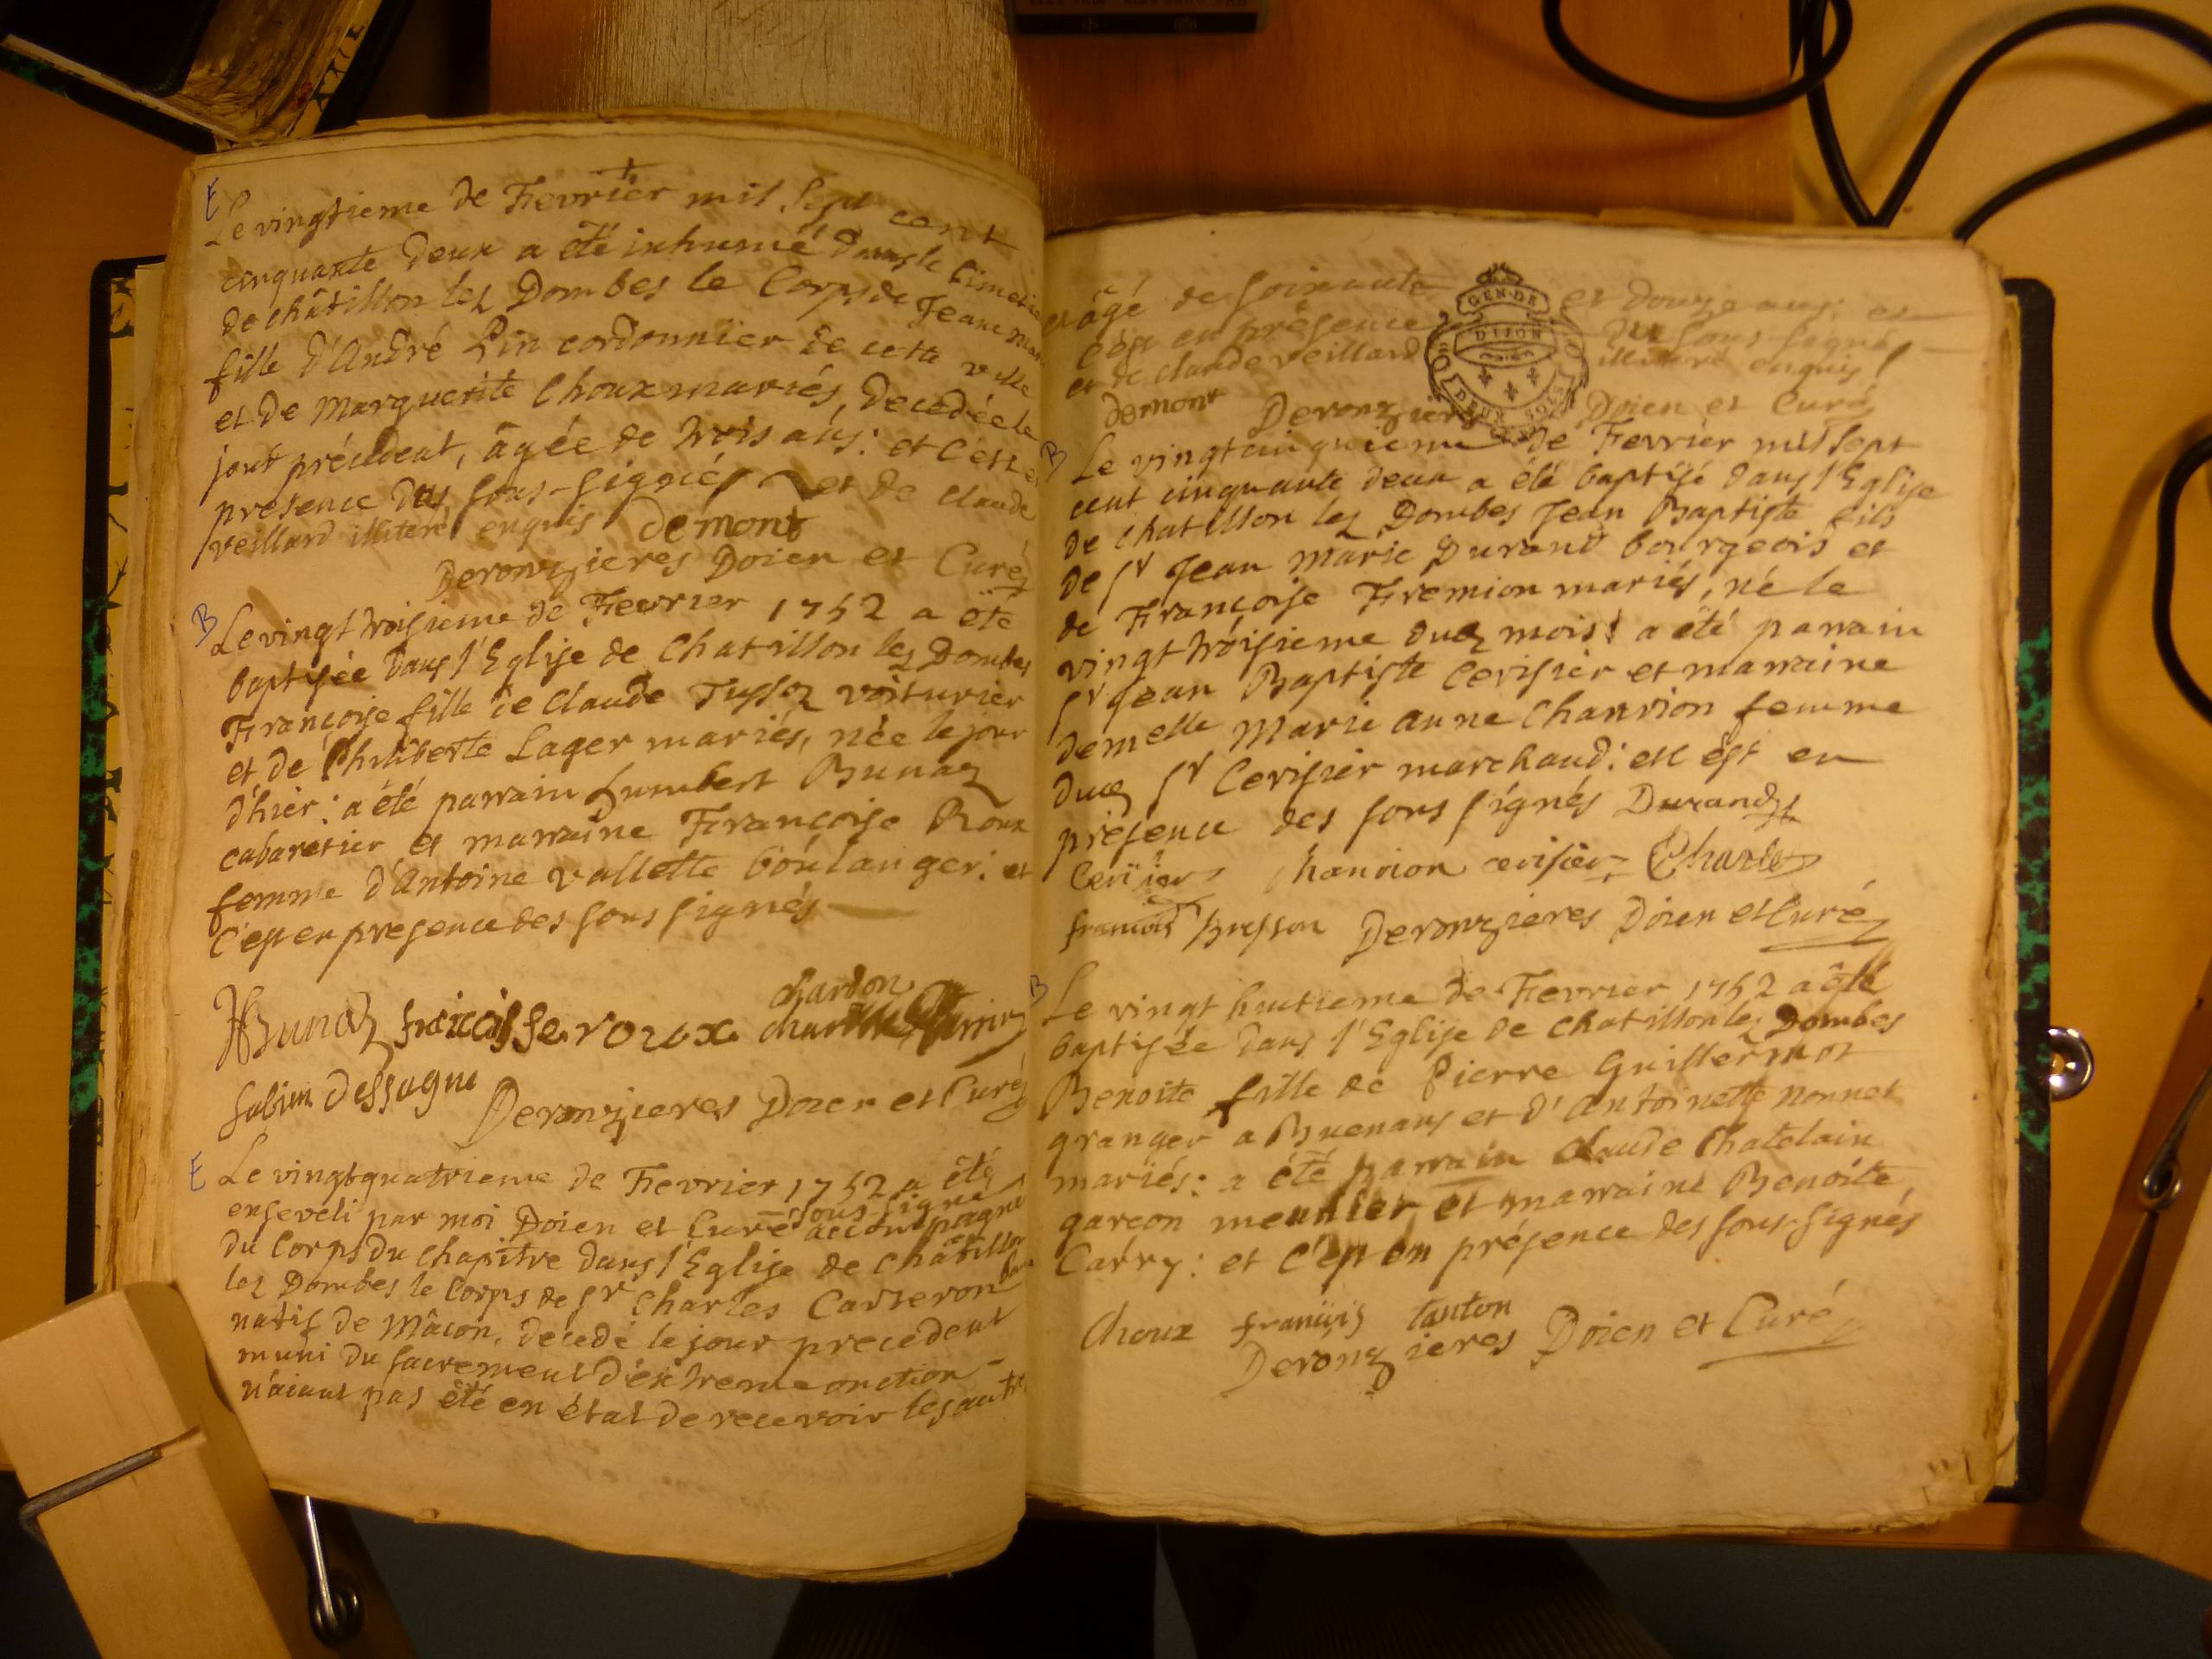 E
Le vingtieme de Fevrier mil sept cent
cinquante deux a été inhumé dans le Cimetie
de châtillon lez Dombes le Corps de Jeanne Mar
fille d'André Pin cordonnier de cette ville
et de Marguerite Choux mariés, decedée le
jour précédent, âgée de trois ans: et c'est e
presence des sous-signés et de claude
veillard illiteré enquis demont
Deronzieres Doien et Curé
B
Le vingt troisieme de Fevrier 1752 a été
baptisée dans l'Eglise de Chatillon lez Dombes
Françoise fille de Claude voiturier
et de Philiberte Lager mariés, née le jour
d'hier: a été parrain humbert Bunaz
cabaretier et marraine Françoise Roux
femme d'Antoine vallette boulanger: et
c'est en presence des sous signés
HBunaz francoisse roux chardon
fabien Dessagne Deronzieres Doien et Curé
E
Le vingt quatrieme de Fevrier 1752 a été
enseveli par moi Doien et Curé sous-signé accompagné
du Corps du chapitre dans l'Eglise de Châtillon
lez Dombes le Corps de Sr Charles Carteron
natif de Mâcon, decedé le jour precedent
muni du sacrement d'extreme onction
n'aiant pas été en état de recevoir les autre
et âgé de soixante et douze ans: et
c'est en présence du sous-signé
et de claude veillard illiteré enquis
demont Deronzieres Doien et Curé
GEN. DE
DIJON
DEUX SOLS
B
Le vingt cinquieme de Fevrier mil sept
cent cinquante deux a été baptisé dans l'Eglise
de chatillon lez Dombes Jean Baptiste fils
de Sr Jean Marie Durand bourgeois et
de Françoise Fremion mariés, né le
vingt troisieme dud mois: a été parrain
Sr Jean Baptiste Cerisier et marraine
demelle Marie anne Chanrion femme
dud Sr Cerisier marchand: et c'est en
présence des sous signés Durand
Cerisier Chanrion cerisier Charles
francois Deronzieres Doien et Curé
B
Le vingt huitieme de Fevrier 1752 a été
baptisée dans l'Eglise de Chatillon lez Dombes
Benoite fille de Pierre Guillermot
granger a Buenans et d'Antoinette Monnet
mariés: a été parrain Claude Chatelain
garçon meunier et marraine Benoite
Carry: et c'est en présence des sous-signés
Choux francois tanton
Deronzieres Doien et Curé